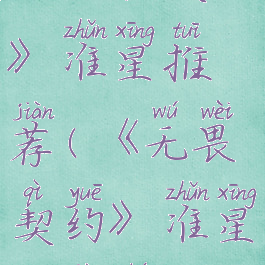 zhǔn xīng tuī
》准星推
jiàn wú wèi
荐(《无畏
qì yuē zhǔn xīng
契约》准星